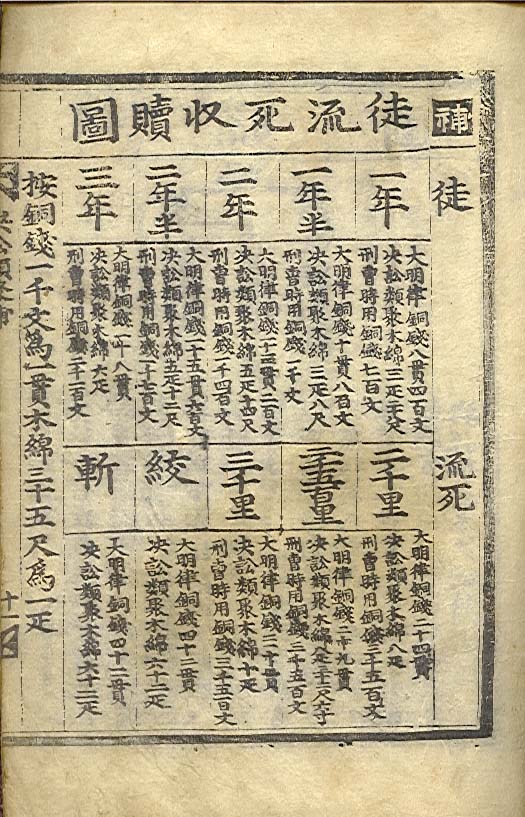 補
徒流死収贖圖
徒
一年
大明律銅錢八貫四百文
決訟類聚木綿三疋二尺
刑曹時用銅錢七百文
一年半
大明律銅錢十貫八百文
決訟類聚木綿三疋八尺
刑曹時用銅錢一千文
二年
大明律銅錢十三貫二百文
決訟類聚木綿五疋十四尺
刑曹時用銅錢一千四百文
二年半
大明律銅錢一十五貫六百文
決訟類聚木綿五疋十二尺
刑曹時用銅錢一千七百文
三年
大明律銅錢一十八貫
決訟類聚木綿六疋
刑曹時用銅錢二千一百文
流死
二千里
大明律銅錢二十四貫
決訟類聚木綿八疋
刑曹時用銅錢三千五百文
二千五百里
大明律銅錢二十九貫
決訟類聚木綿八疋二十三尺
刑曹時用銅錢三千五百文
三千里
大明律銅錢三十貫
決訟類聚木綿十疋
刑曹時用銅錢三千五百文
絞
大明律銅錢四十二貫
決訟類聚木綿六十二疋
斬
大明律銅錢四十二貫
決訟類聚木綿六十二疋
按銅錢一千文爲一貫木綿三十五尺爲一疋
決訟類聚補
十一